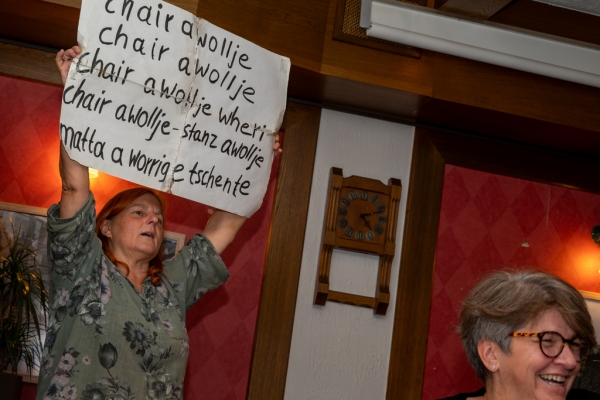 chair awollje
chair awollje
chair awollje wheri
chair awollje-stanz awollje
matta a worrige tschente